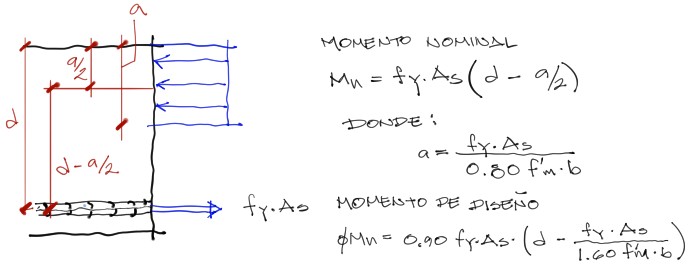 a
a/2
d
d - a/2
fy·As
MOMENTO NOMINAL
Mn = fy·As(d - a/2)
DONDE:
a = fy·As / 0.80 f'm·b
MOMENTO DE DISEÑO
φMn = 0.90 fy·As·(d - fy·As / 1.60 f'm·b)